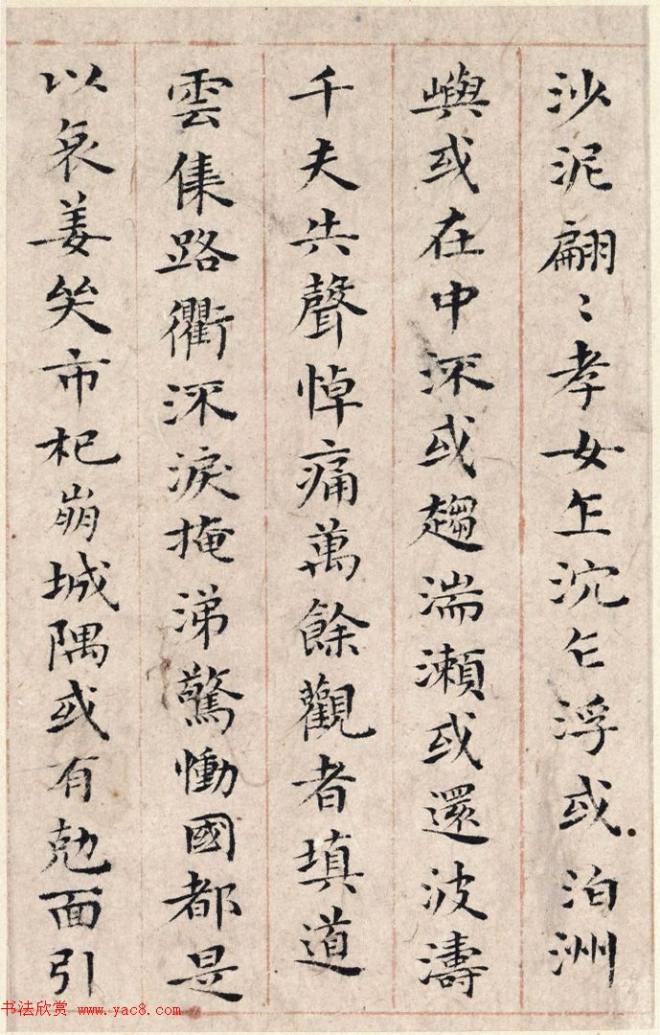 沙泥翩〻孝女乍沉乍浮或泊洲
嶼或在中流或趨湍瀨或還波濤
千夫失聲悼痛萬餘觀者填道
雲集路衢流淚掩涕驚慟國都是
以哀姜哭市杞崩城隅或有剋面引
书法欣赏 www.yac8.com